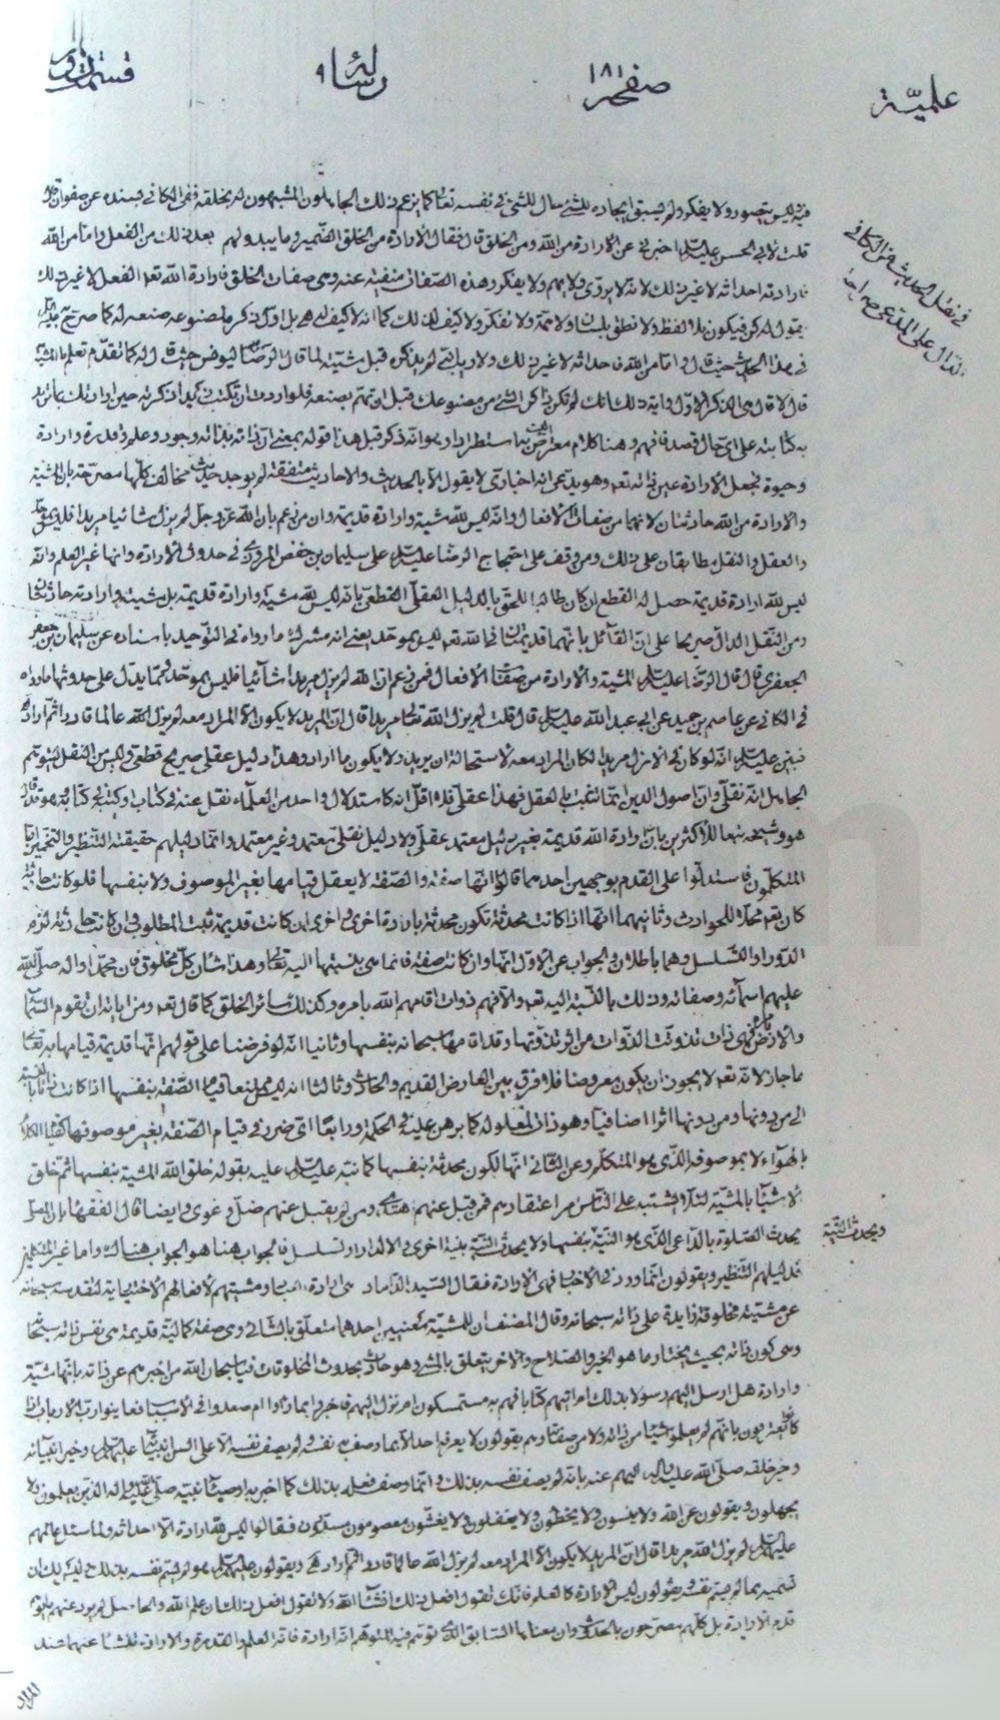 علميّة
صفحه ١٨١
رسالهٔ ٩
قسمت
في نقل الحديث من الكافي
الدال على المدعى صراحة
فيه ليس بتصور ولا يفكر ولم يسبق ايجاده للشئ حال للشئ في نفسه تعالى كما يزعم ذلك الجاهلون المشبهون له بخلقه ففي الكافي بسنده عن صفوان قال
قلت لابي الحسن عليه السلام اخبرني عن الارادة من الله ومن الخلق قال فقال الارادة من الخلق الضمير وما يبدو لهم بعد ذلك من الفعل واما من الله
فارادته احداثه لا غير ذلك لانه لا يروي ولا يهم ولا يفكر وهذه الصفات منفية عنه وهي صفات الخلق فارادة الله تعالى الفعل لا غير ذلك
يقول له كن فيكون بلا لفظ ولا نطق بلسان ولا همة ولا تفكر ولا كيف لذلك كما انه لا كيف له
في هذا الحديث حيث قال واما من الله فاحداثه لا غير ذلك قبل مشيته لما قال الرضا ليونس حيث قال له كما تقدم تعلم ما المشية
قال لا قال هي الذكر الاول
به كتابته على اي حال قصد فافهم وهنا كلام معترض به استطرادا
وحيوة فجعل الارادة عين ذاته تعالى وهو يدعي انه اخباري لا يقول الا بالحديث والاحاديث متفقة لم يوجد حديث مخالف كلها مصرحة بان المشية
والارادة من الله حادثتان لانهما من صفات الافعال وانه ليس لله مشية وارادة قديمة وان من زعم بان الله عز وجل لم يزل شائيا مريدا فليس بموحد
والعقل والنقل مطابقان على ذلك ومن وقف على احتجاج الرضا عليه السلام على سليمان بن حفص المروزي في حدوث الارادة وانها غير العلم وانه
ليس لله ارادة قديمة حصل له القطع ان كان طالبا للحق بالدليل العقلي القطعي بانه ليس لله مشية وارادة قديمة بل مشيته وارادته حادثتان
ومن النقل الدال صريحا على ان القائل بانهما قديمتان في الله تعالى ليس بموحد يعني انه مشرك ما رواه في التوحيد باسناده عن سليمان بن جعفر
الجعفري قال قال الرضا عليه السلام المشية والارادة من صفات الافعال فمن زعم ان الله لم يزل مريدا شائيا فليس بموحد ومما يدل على حدوثها ما رواه
في الكافي عن عاصم بن حميد عن ابي عبد الله عليه السلام قال قلت لم يزل الله تعالى مريدا قال ان المريد لا يكون الا المراد معه لم يزل الله عالما قادرا ثم اراد
فبين عليه السلام انه لو كان في الازل مريدا لكان المراد معه لاستحالة ان يريد ولا يكون ما اراد وهذا دليل عقلي صريح قطعي وليس من النقل ليتوهم
الجاهل انه نقلي وان اصول الدين انما تثبت بالعقل فهذا عقلي فلا اقل انه كاستدلال واحد من العلماء نقل عنه في كتاب
هو وشيخه تبعا للاكثرين بان ارادة الله قديمة بغير دليل معتمد عقلي ولا دليل نقلي معتمد وغير معتمد وانما دليلهم حقيقته التنظير والتخمين اما
المتكلمون فاستدلوا على القدم بوجهين احدهما قالوا انها صفة والصفة لا يعقل قيامها بغير الموصوف ولا بنفسها فلو كانت حادثة
كان تعالى محلا للحوادث وثانيهما انها اذا كانت محدثة تكون محدثة بارادة اخرى واخرى ان كانت قديمة ثبت المطلوب وان كانت حادثة لزم
الدور او التسلسل وهما باطلان والجواب عن الاول انها وان كانت صفة فانما هي بنسبتها اليه تعالى وهذا شان كل مخلوق فان محمدا واله صلى الله
عليهم اسمائه وصفاته وذلك بالنسبة اليه تعالى والا فهم ذوات اقامهم الله بامره وكذلك سائر الخلق كما قال تعالى ومن اياته ان تقوم السماء
والارض بامره فهي ذات تذوتت الذوات من اثر تذوتها وقد اقامها سبحانه بنفسها وثانيا انه لو فرضنا على قولهم انها قديمة قيامها به تعالى
ما جاز لانه تعالى لا يجوز ان يكون معروضا فلا فرق بين العارض القديم والحادث وثالثا انه لم يمتنع قيام الصفة بنفسها اذا كانت ذاتا بالنسبة
الى من دونها ومن دونها اثرا اضافيا وهو ذات لمعلوله كما برهن عليه في الحكمة ورابعا اي ضرر في قيام الصفة بغير موصوفها كقيام الكلام
بالهواء لا بموصوفه الذي هو المتكلم وعن الثاني انها تكون محدثة بنفسها كما نبه عليه السلام عليه بقوله خلق الله المشية بنفسها ثم خلق
الاشياء بالمشية لئلا يشتبه على الناس مر اعتقادهم فمن قبل عنهم هدي ومن لم يقبل عنهم ضل وغوى وايضا قال الفقهاء بان المصلي
ويحدث النية
يحدث الصلوة بالداعي الذي هو النية بنفسها ولا يحدث النية بنية اخرى والا لدار او تسلسل فالجواب هنا هو الجواب هناك واما غير المتكلمين
فدليلهم التنظير ويقولون انما ورد في الاخبار فهي الارادة فقال السيد الداماد هي ارادة العباد ومشيتهم لافعالهم الاختيارية لتقدسه سبحانه
عن مشية مخلوقة زايدة على ذاته سبحانه وقال المصنف ان للمشية معنيين احدهما متعلق بالشائي وهي صفة كمالية قديمة هي نفس ذاته سبحانه
وهي كون ذاته بحيث يختار ما هو الخير والصلاح والاخر يتعلق بالمشئ وهو حادث بحدوث المخلوقات فيا سبحان الله من اخبرهم عن ذاته بانها مشية
وارادة هل ارسل اليهم رسولا بذلك ام اتيهم كتابا فهم به مستمسكون ام نزل اليهم فاخبروا بما راوا ام صعدوا في الاسباب فعاينوا رب الارباب اذا
كانوا يعترفون بانهم لم يعلموا شيئا من ذاته ولا من صفاته وهم يقولون لا يعرفه احد الا بما وصف به نفسه ولم يصف نفسه الا على السن انبيائه عليهم السلام وخير انبيائه
وخير خلقه صلى الله عليه واله اليهم عنه بانه لم يصف نفسه بذلك وانما وصف فعله بذلك كما اخبر به اوصياء نبيه صلى الله عليه واله الذين يعلمون ولا
يجهلون ويقولون عن الله ولا ينسون ولا يخطون ولا يغفلون ولا يغشون معصومون مسددون فقالوا ليس لله ارادة الا احداثه ولما سئل عالمهم
عليه السلام لم يزل الله مريدا قال ان المريد لا يكون الا المراد معه لم يزل الله عالما قادرا ثم اراد ويقولون عليهم السلام هو لم يسم نفسه بذلك
تسميه بما لم يسم نفسه ويقولون ليس الارادة كالعلم فانك تقول افعل ذلك ان شاء الله ولا تقول افعل ذلك ان علم الله والحاصل لم يرد عنهم
قدم الارادة بل كلهم مصرحون بالحدوث وان معناها السابق الذي توهم فيه المتوهم انه ارادة فانه العلم والقدرة والارادة
المراد